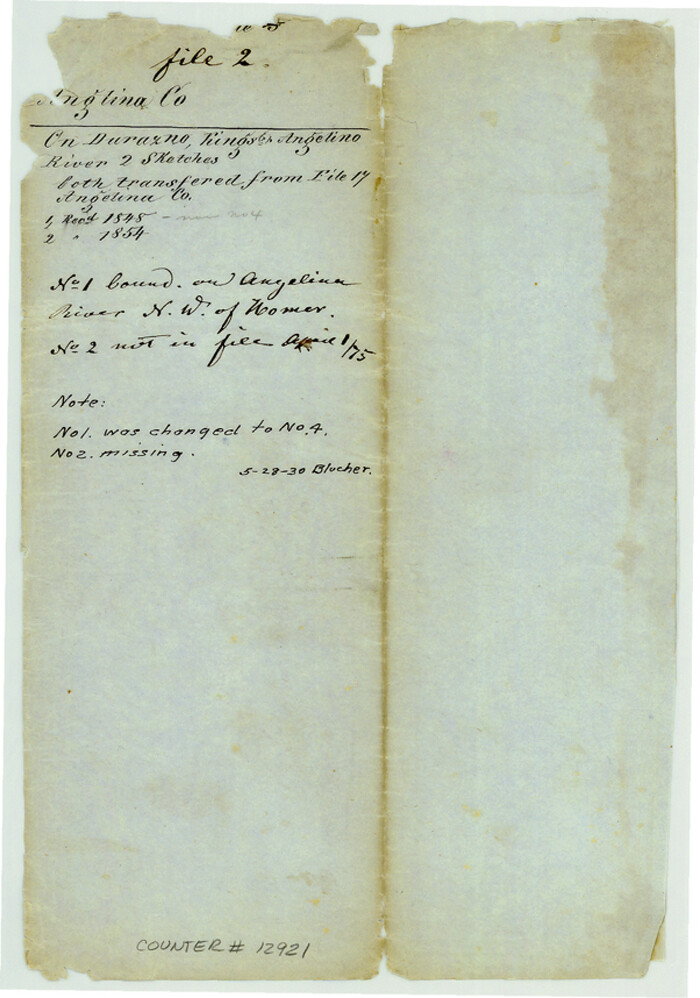 file 2.
Angelina Co
On Durazno, Kings & Angelino
River 2 Sketches
both transfered from File 17
Angelina Co.
1, Recd 1848 - now No 4
2 " 1854
No 1 bound. on Angelina
River N. W. of Homer.
No 2 not in file April 1/75
Note:
No1. was changed to No.4.
No2. missing.
5-28-30 Blucher.
COUNTER # 12921